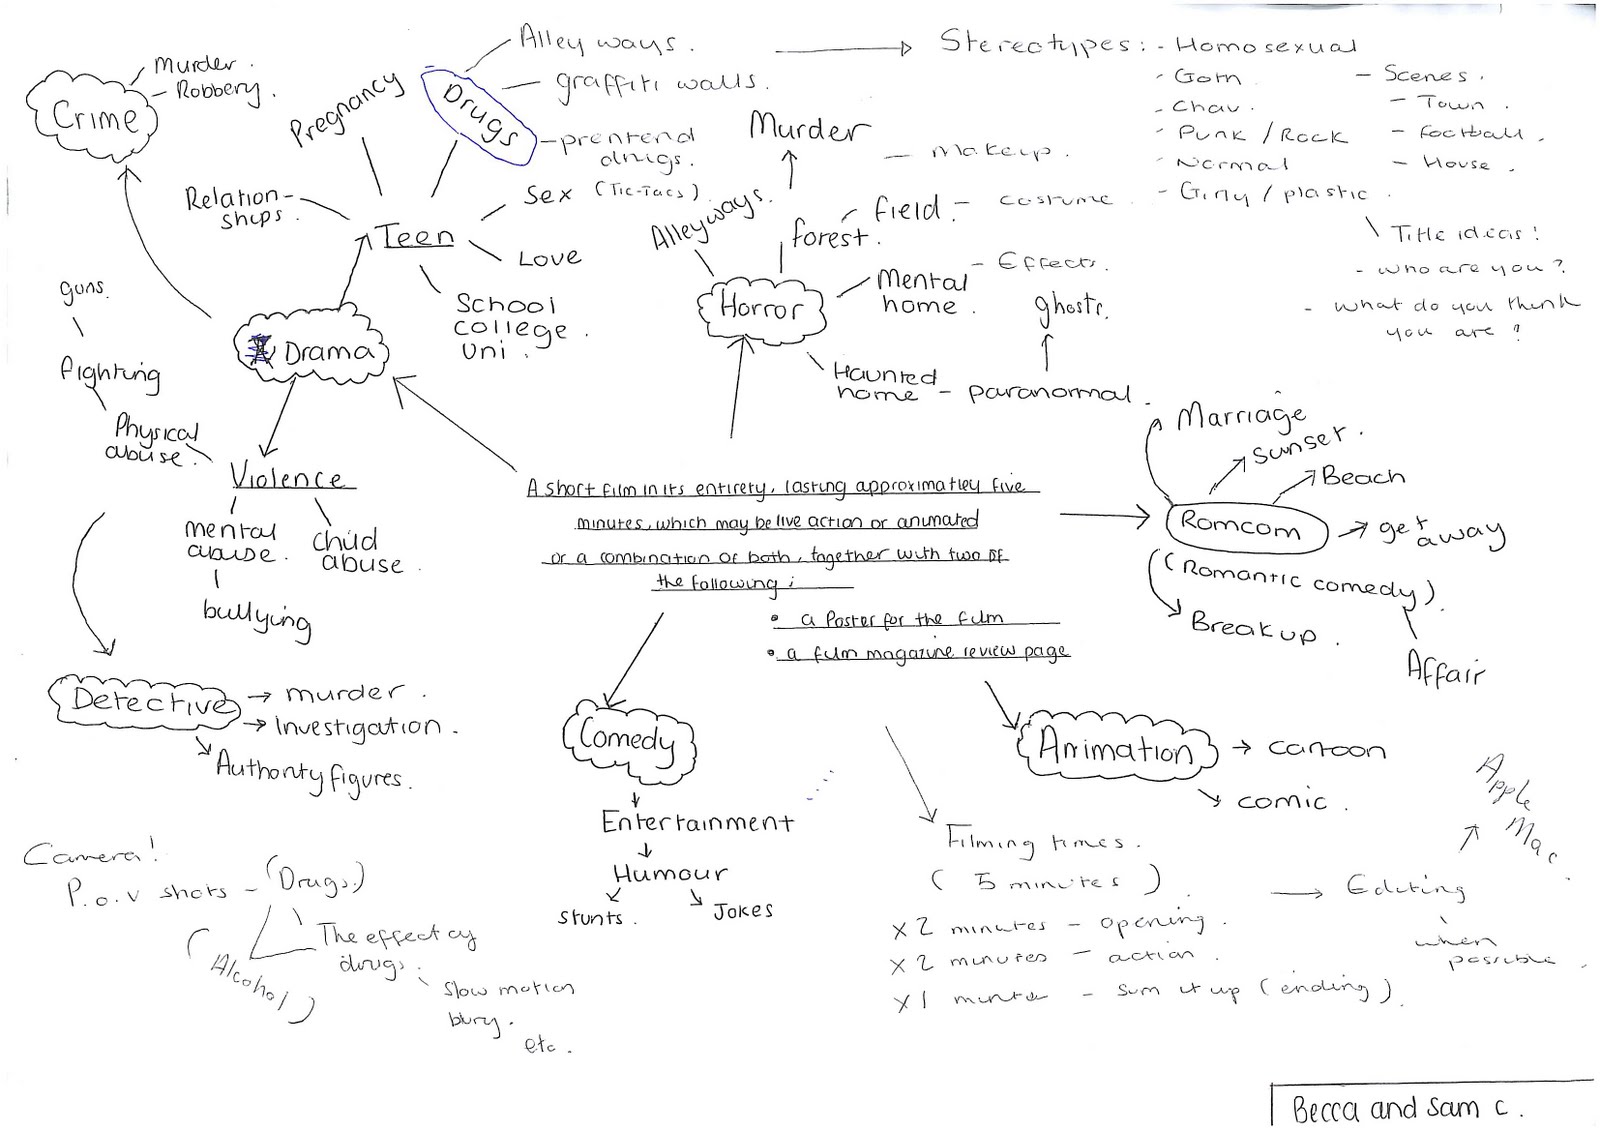 Crime
Murder.
- Robbery.
Pregnancy
Drugs
Alley ways.
graffiti walls.
- prentend
drugs.
(Tic-Tacs)
Relation-
ships.
Teen
Sex
Love
School
college
uni.
Drama
guns.
fighting
Physical
abuse.
Violence
mental
abuse.
child
abuse.
bullying
Detective
murder.
Investigation.
Authority figures.
Murder
Alleyways.
forest.
field.
- Makeup.
- costume
- Effects.
Horror
Mental
home.
Haunted
home - paranormal.
ghosts.
Stereotypes: - Homosexual
- Goth
- Chav.
- Punk / Rock
- Normal
- Girly / plastic.
- Scenes.
- Town.
- football.
- House.
Title ideas!
- who are you?
- what do you think
you are?
A short film in its entirety, lasting approximatley five
minutes, which may be live action or animated
or a combination of both, together with two of
the following:
• a Poster for the film
• a film magazine review page
Marriage
Sunset.
Beach
Romcom
get
away
(Romantic comedy).
Break up.
Affair
Comedy
Entertainment
Humour
Stunts.
Jokes
Animation
cartoon
comic.
Filming times.
(5 minutes)
x 2 minutes - opening.
x 2 minutes - action.
x 1 minute - sum it up (ending).
Editing
when
possible.
Apple
Mac.
Camera!
P.o.v shots - (Drugs.)
(Alcohol)
The effect of
drugs.
Slow motion
blury.
etc.
Becca and Sam C.